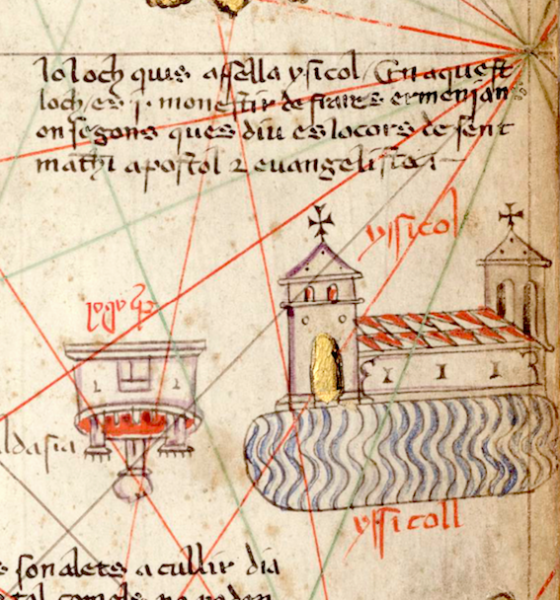 lo loch ques apella ysicol En aquest
loch es j. monestir de frares ermenian
on segons ques diu es lo cors de sent
mathi apostol 2 euangelista
yssicol
yssicoll
son aletes a cullir dia